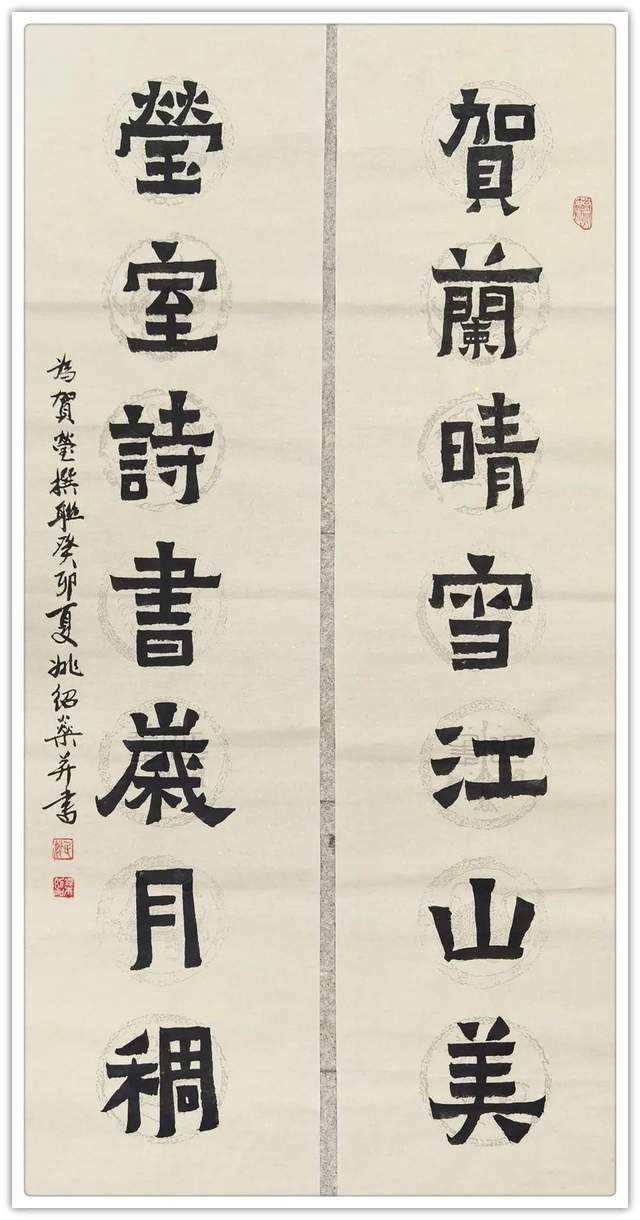 賀蘭晴雪江山美
瑩室詩書歲月稠
為賀瑩撰聯癸卯夏姚紹燊并書